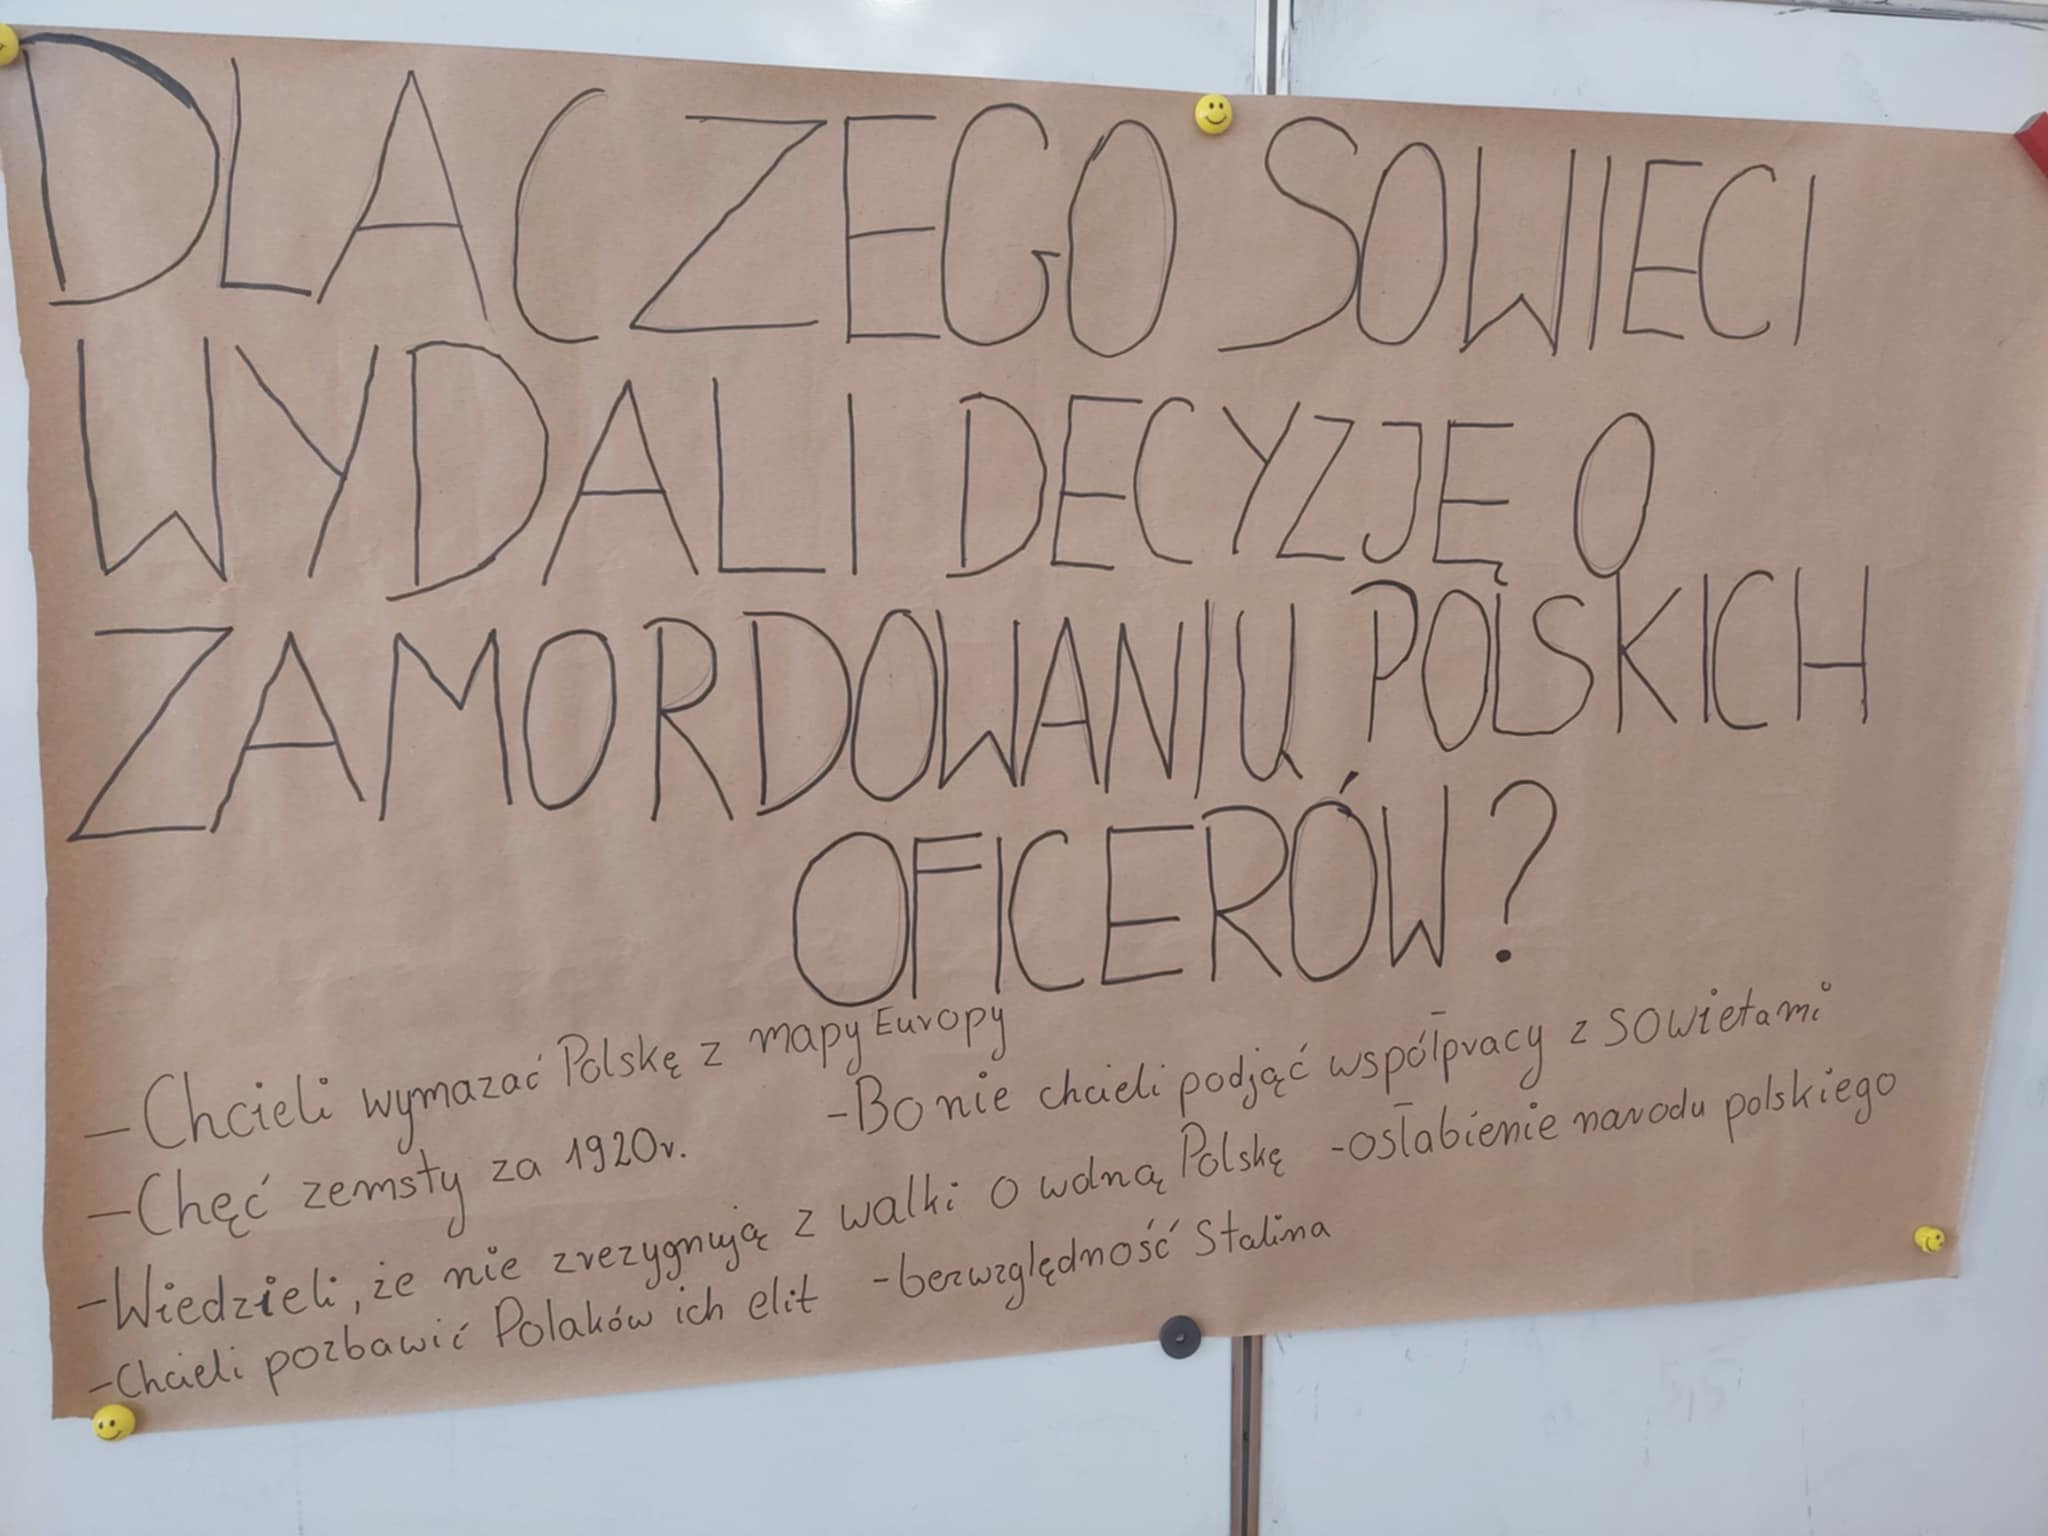 DLACZEGO SOWIECI
WYDALI DECYZJĘ O
ZAMORDOWANIU POLSKICH
OFICERÓW?
- Chcieli wymazać Polskę z mapy Europy
- Chęć zemsty za 1920r.
- Bo nie chcieli podjąć współpracy z sowietami
- Wiedzieli, że nie zrezygnują z walki o wolną Polskę
- osłabienie narodu polskiego
- Chcieli pozbawić Polaków ich elit
- bezwzględność Stalina